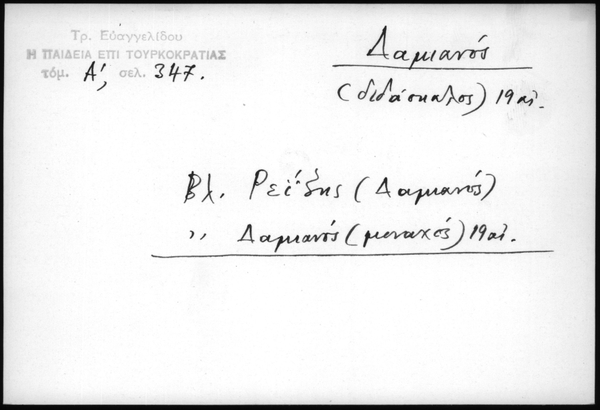 Τρ. Εὐαγγελίδου
Η ΠΑΙΔΕΙΑ ΕΠΙ ΤΟΥΡΚΟΚΡΑΤΙΑΣ
τόμ. Α', σελ. 347.
Δαμιανός
(διδάσκαλος) 19 αἰ.
Βλ. Ρεΐζης (Δαμιανός)
,, Δαμιανός (μοναχός) 19 αἰ.